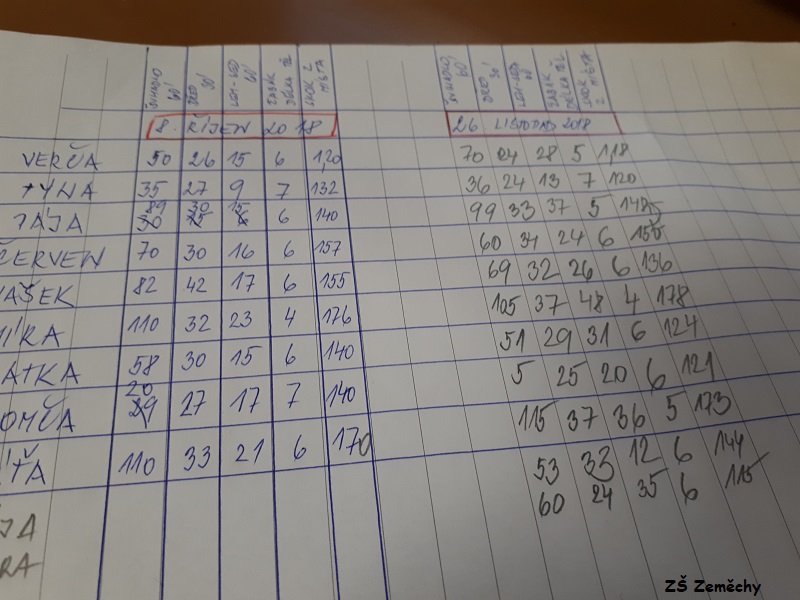 ŠVIHADLO 60' DŘEP 30' LEH-SED 60' ZABÁK DÉLKA TĚL. SKOK Z MÍSTA ŠVIHADLO 60' DŘEP 30' LEH-SED 60' ZABÁK DÉLKA TĚL. SKOK Z MÍSTA
8. ŘÍJEN 2018 26. LISTOPAD 2018
VERČA 50 26 15 6 1,20 70 24 28 5 1,18
TÝNA 35 27 9 7 132 36 24 13 7 120
TÁJA 89 30 15 6 140 99 33 37 5 148
ČERVEN 70 30 16 6 157 60 34 24 6 155
VAŠEK 82 42 17 6 155 69 32 26 6 136
MÍRA 110 32 23 4 176 105 37 48 4 178
ATKA 58 30 15 6 140 51 29 31 6 124
OMČA 20 27 17 7 140 5 25 20 6 121
ÍŤA 110 33 21 6 170 115 37 36 5 173
JA 53 33 12 6 144
RA 60 24 35 6 115
ZŠ Zeměchy